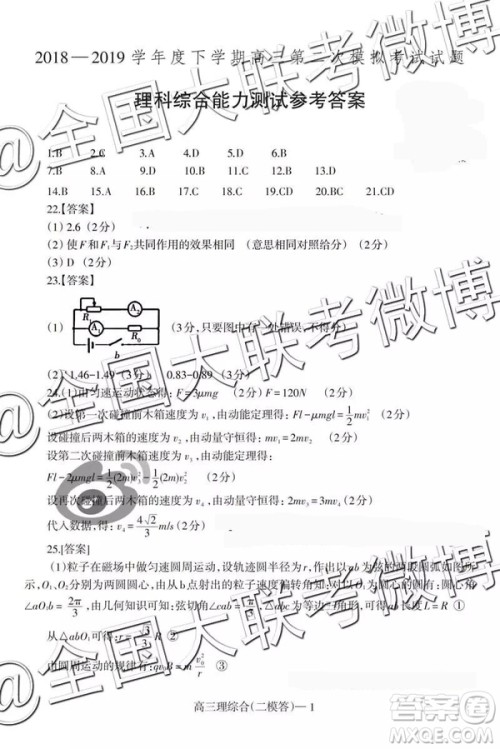 2018—2019学年度下学期高三第二次模拟考试试题
理科综合能力测试参考答案
1.B 2.C 3.A 4.D 5.D 6.B
7.B 8.A 9.D 10.C 11.C 12.D 13.C
14.B 15.A 16.D 17.C 18.A 19.CD 20.BD 21.CD
22.【答案】
(1) 2.6(2分)
(2) 使F和F₁与F₂共同作用的效果相同 (意思相同对照给分)(2分)
(3) D(2分)
23.【答案】
R₁ A₂
A₁ R₀
b
(1) (3分,只要图中有一处错误,不得分)
(2) 1.46-1.49(3分) 0.83-0.89(3分)
24.(1)由匀速运动状态得:F=3μmg F=120N (2分)
(2)设第一次碰撞前木箱速度为v₁,由动能定理得:Fl-μmgl=½mv₁² (2分)
设碰撞后两木箱的速度为v₂,由动量守恒得: (2分)
设第二次碰撞前木箱速度为v₃,由动能定理得:
Fl-2μmgl=½(2m)v₃²-½(2m)v₂² (2分)
设再次碰撞后两木箱的速度为v₄,由动量守恒得: (2分)
代入数据,得:v₄=4√2/3 m/s(2分)
25.[答案]
(1)粒子在磁场中做匀速圆周运动,设轨迹圆半径为r,以ab为弦的两段圆弧如图所
示,O₁、O₂分别为两圆圆心,由从b点射出的粒子速度偏转角知:
∠aO₁b=2π/3,由几何知识可知:弦切角∠cab=π/3,∠abc为等边三角形,可得ab长度L=R ①
从△abO₁可得:r=√3/3 R ②
由圆周运动的规律有:qv₀B=m v₀²/r ③
高三理综合(二模答)—1
@全国大联考微博
@全国大联考微博
答案圈